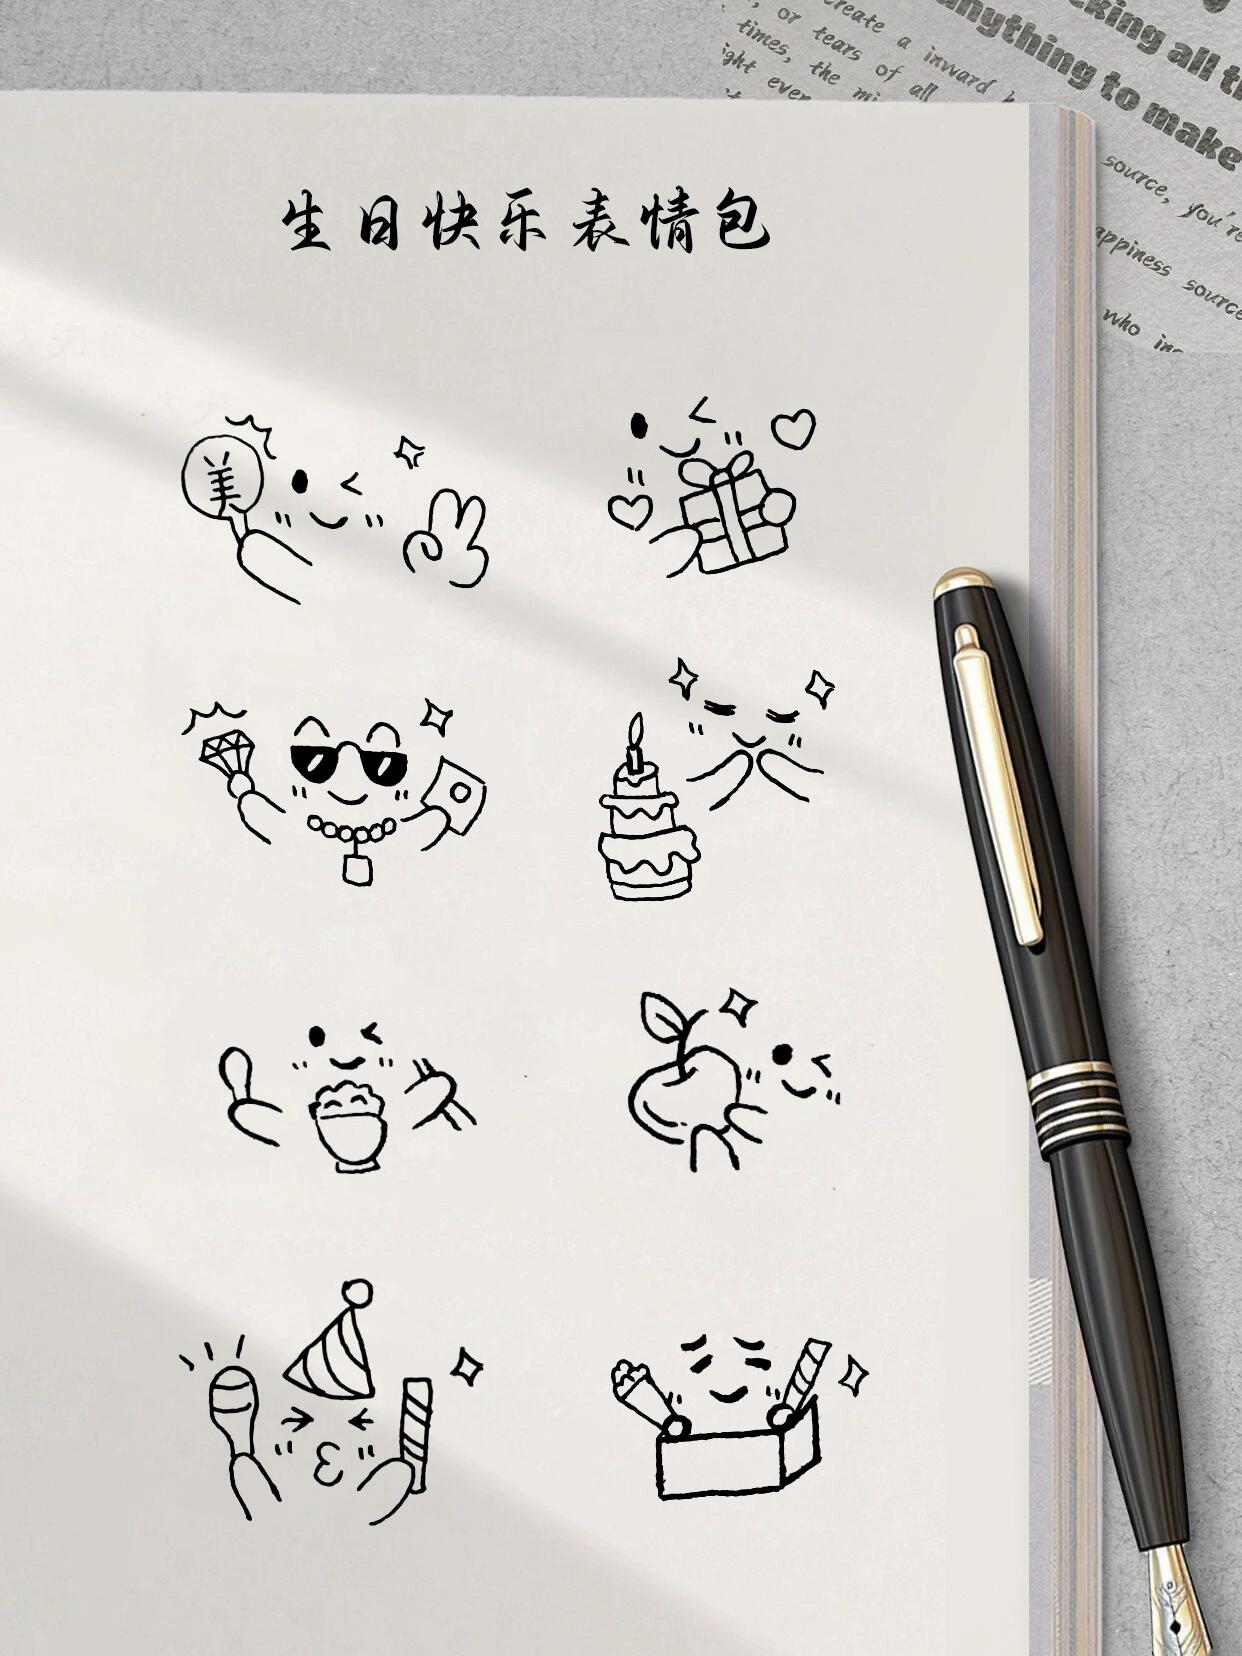 生日快乐表情包
美
create a inward
, or tears of all
times, the mi
ght ever
cking all t
anything to make
source, you're
appiness source
who ins